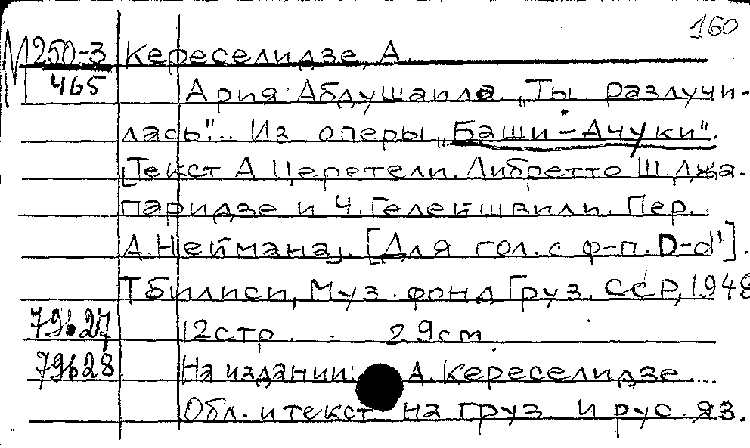 160
М 250-3 Кереселидзе, А.
465 Ария Абдушаила „Ты разлучи-
лась". Из оперы „Баши-Ачуки".
[Текст А. Церетели. Либретто Ш. Джа-
паридзе и Ч. Гелеишвили. Пер.
А. Неймана]. [Для гол. с ф-п. D-d"].
Тбилиси, Муз. фонд Груз. ССР, 1948
79627 12 стр. 29 см.
79628 На издании: А. Кереселидзе...
Обл. и текст на груз. и рус. яз.